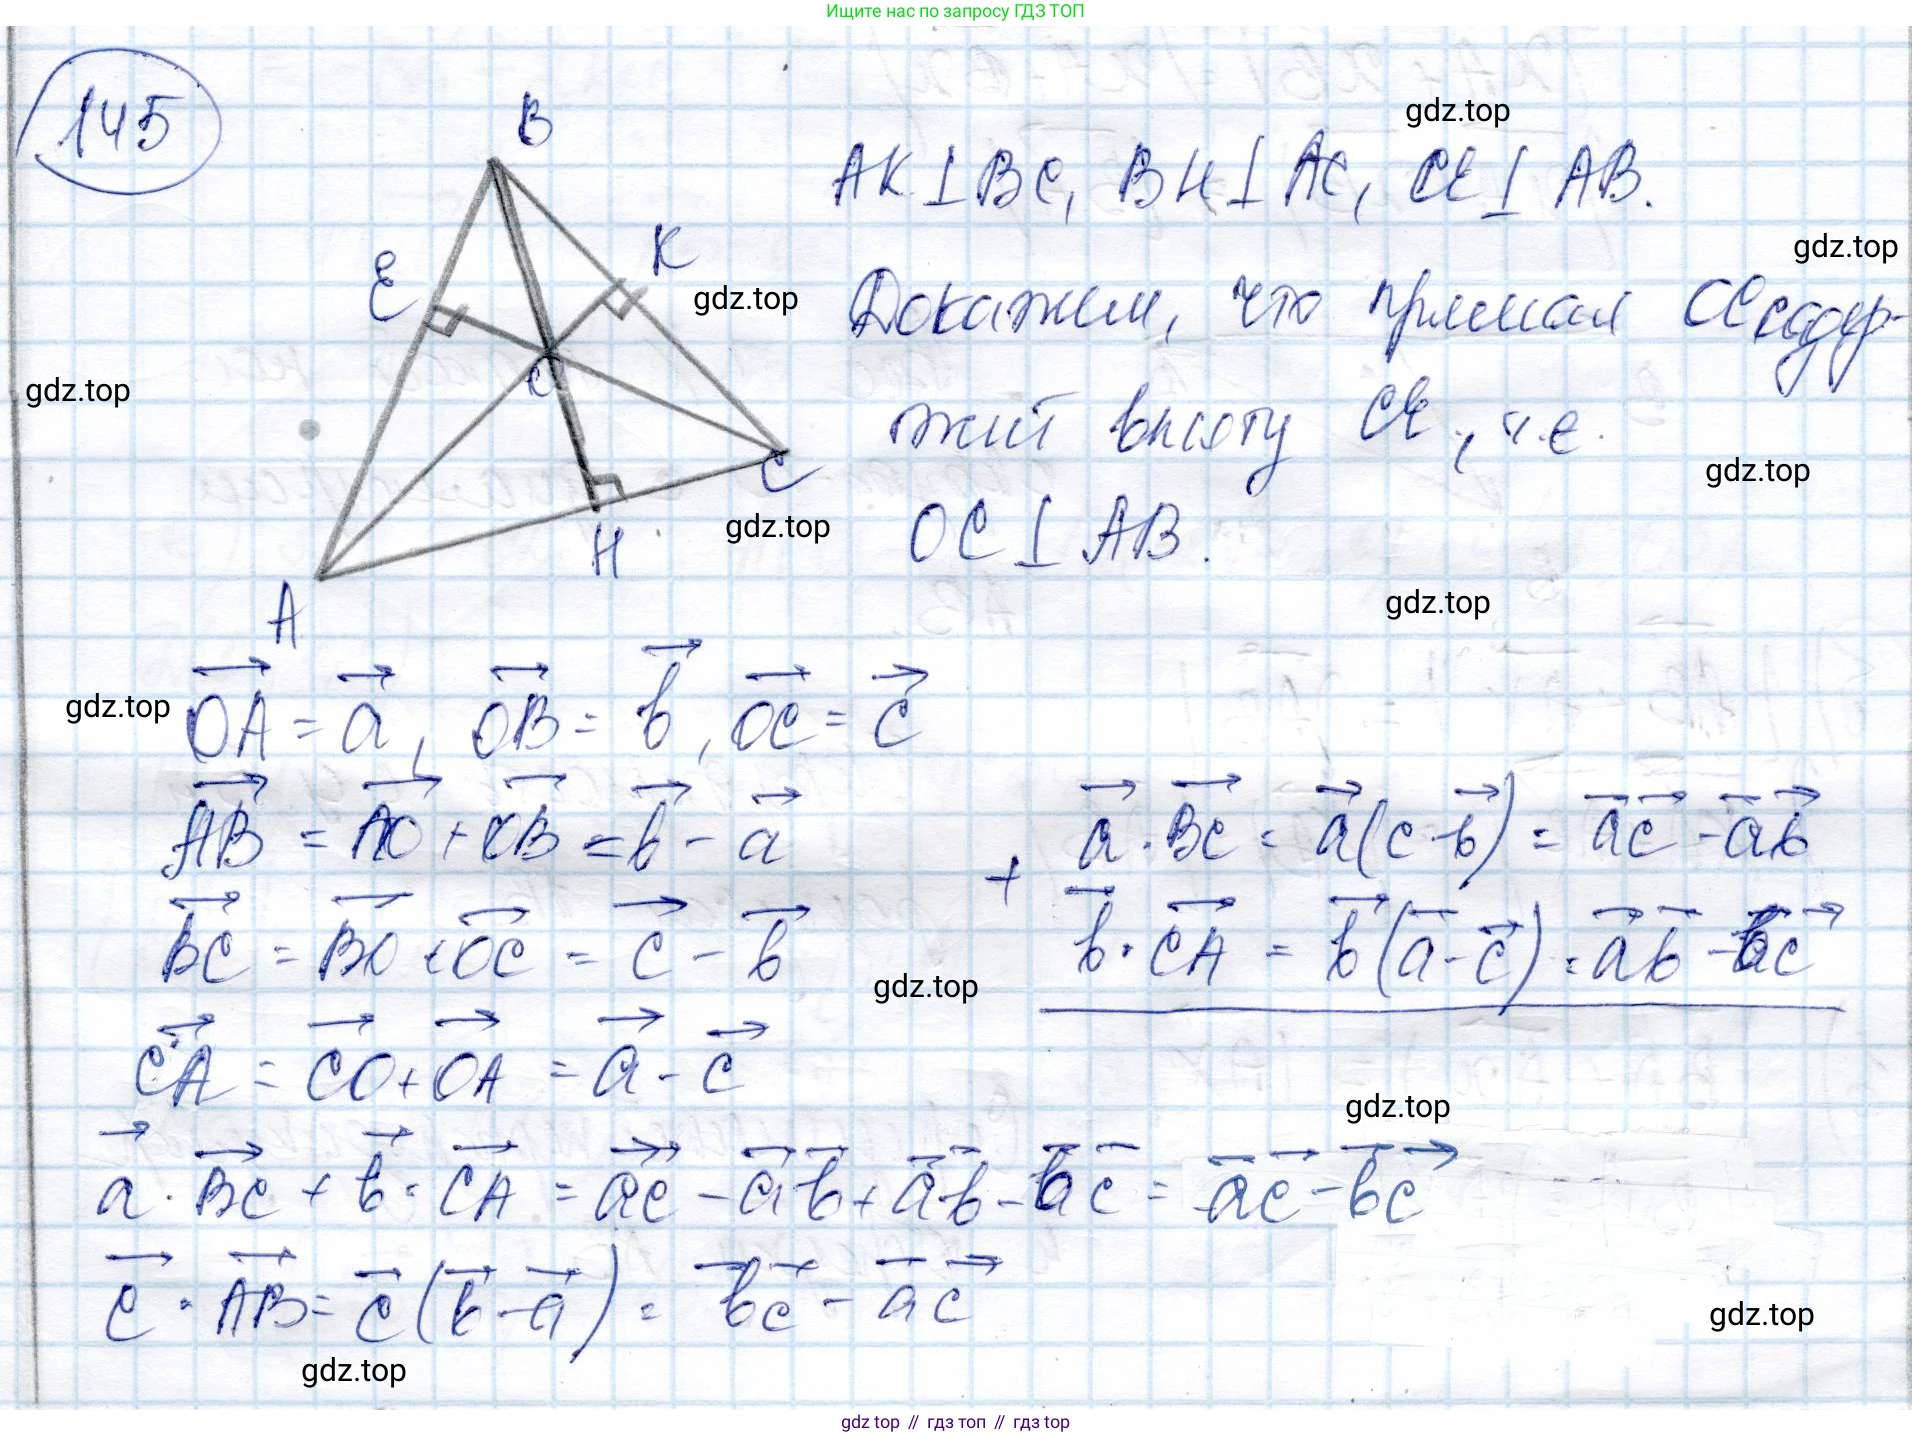 Ищите нас по запросу ГДЗ ТОП
145
B
E
K
O
C
H
A
AK⊥BC, BH⊥AC, CE⊥AB.
Докажем, что прямая OC содер-
жит высоту CE, т.е.
OC⊥AB.
gdz.top
gdz.top
gdz.top
gdz.top
gdz.top
gdz.top
gdz.top
gdz.top
OA→ = a→, OB→ = b→, OC→ = c→
AB→ = AO→ + OB→ = b→ - a→
BC→ = BO→ + OC→ = c→ - b→
CA→ = CO→ + OA→ = a→ - c→
+
a→ · BC→ = a→(c - b→) = a→c→ - a→b→
b→ · CA→ = b→(a→ - c→) = a→b→ - b→c→
gdz.top
gdz.top
a→ · BC→ + b→ · CA→ = a→c→ - a→b→ + a→b→ - b→c→ = a→c→ - b→c→
c→ · AB→ = c→(b→ - a→) = b→c→ - a→c→
gdz.top
gdz.top
gdz.top // гдз топ // гдз top